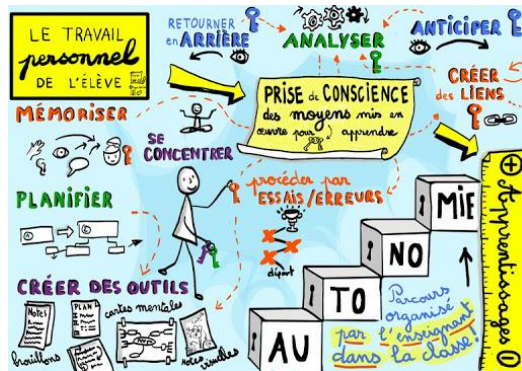 LE TRAVAIL
personnel
DE L'ÉLÈVE
RETOURNER
en ARRIÈRE
ANALYSER
ANTICIPER
CRÉER
des LIENS
PRISE de CONSCIENCE
des moyens mis en
œuvre pour apprendre
MÉMORISER
SE
CONCENTRER
procéder par
ESSAIS/ERREURS
départ
PLANIFIER
CRÉER DES OUTILS
NOTES
PLAN
cartes mentales
brouillons
notes
visuelles
AU
TO
NO
MIE
Parcours
organisé
par l'enseignant
dans la classe!
+ Apprentissages